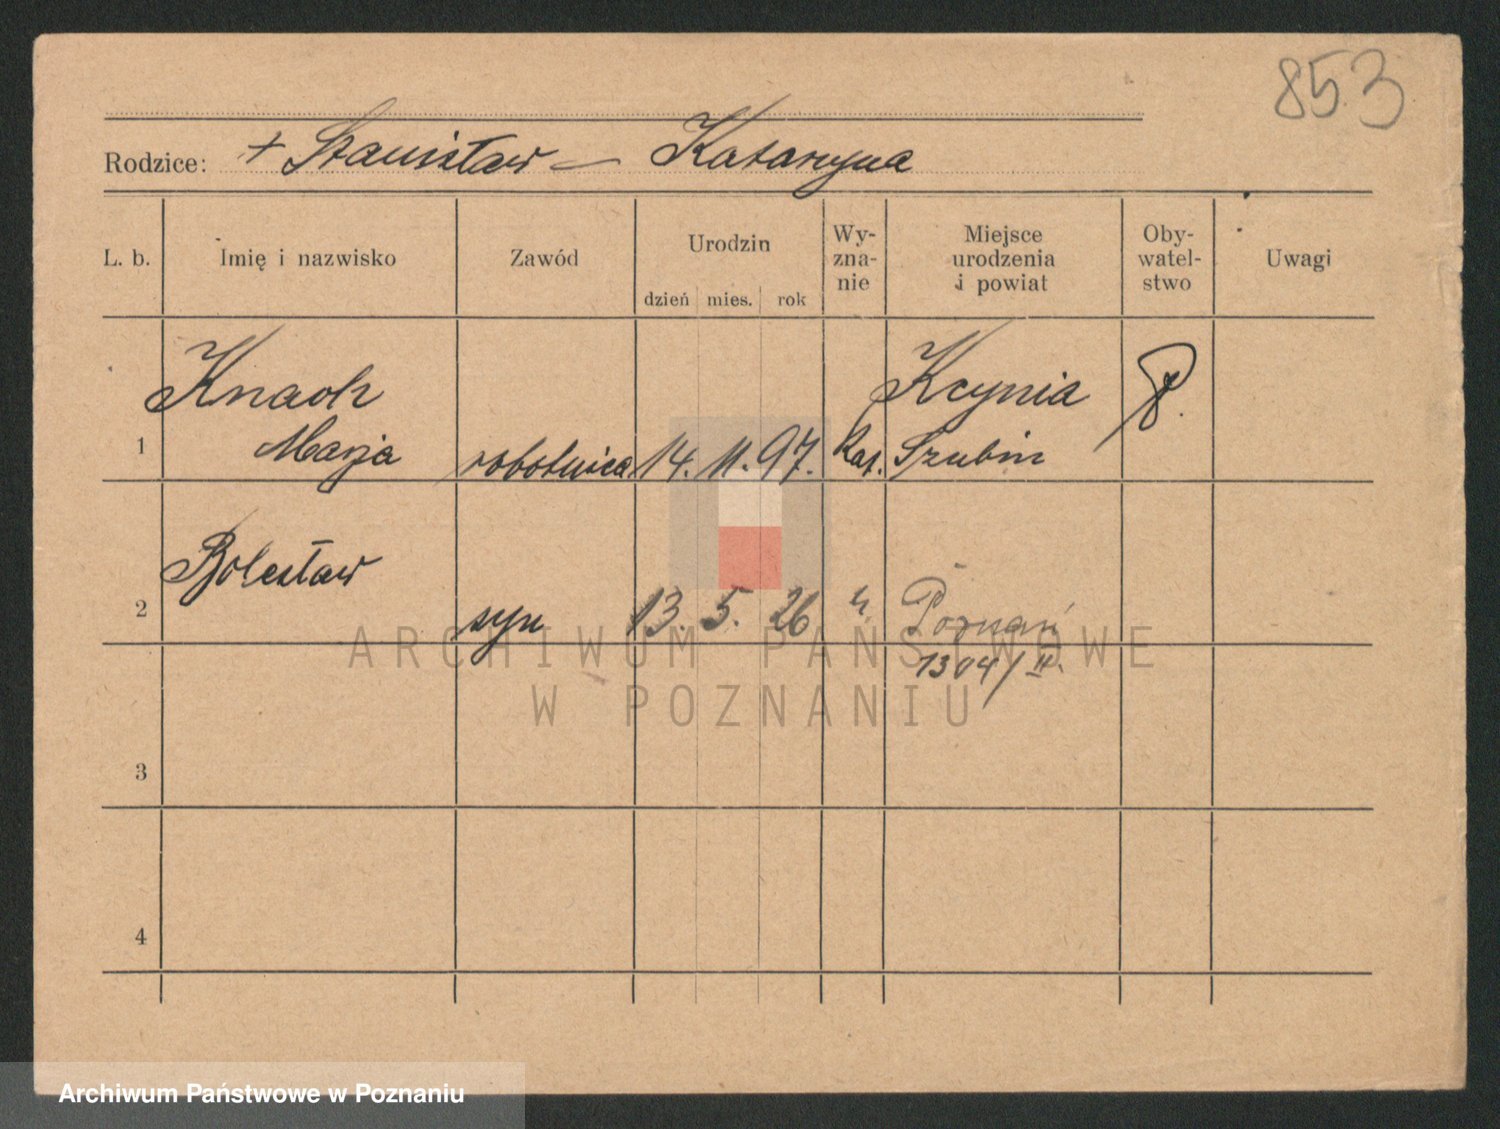 853
Rodzice: + Stanisław — Katarzyna
L. b. Imię i nazwisko Zawód Urodzin Wy- Miejsce Oby- Uwagi
zna- urodzenia watel-
nie i powiat stwo
dzień mies. rok
Knach Kcynia P.
1 Marja robotnica 14. 11. 97. kat. Szubin
Bolesław
2 syn 13. 5. 26 " Poznań
1304/II.
3
4
ARCHIWUM PAŃSTWOWE
W POZNANIU
Archiwum Państwowe w Poznaniu